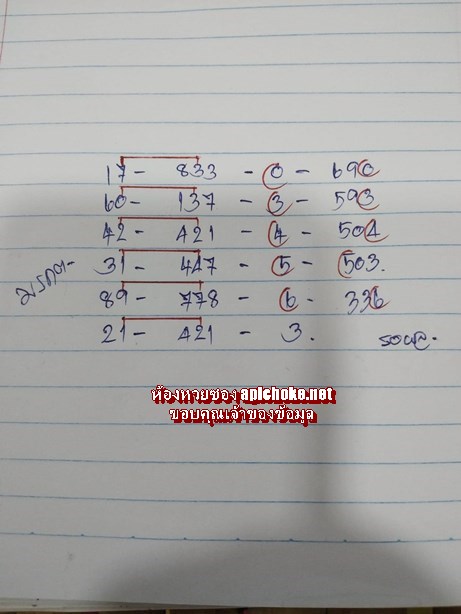 17 - 833 - 0 - 690
60 - 137 - 3 - 593
42 - 421 - 4 - 504
31 - 447 - 5 - 503.
มรดก-
89 - 778 - 6 - 336
21 - 421 - 3.
รอผล.
ห้องหวยซอง apichoke.net
ขอบคุณเจ้าของข้อมูล